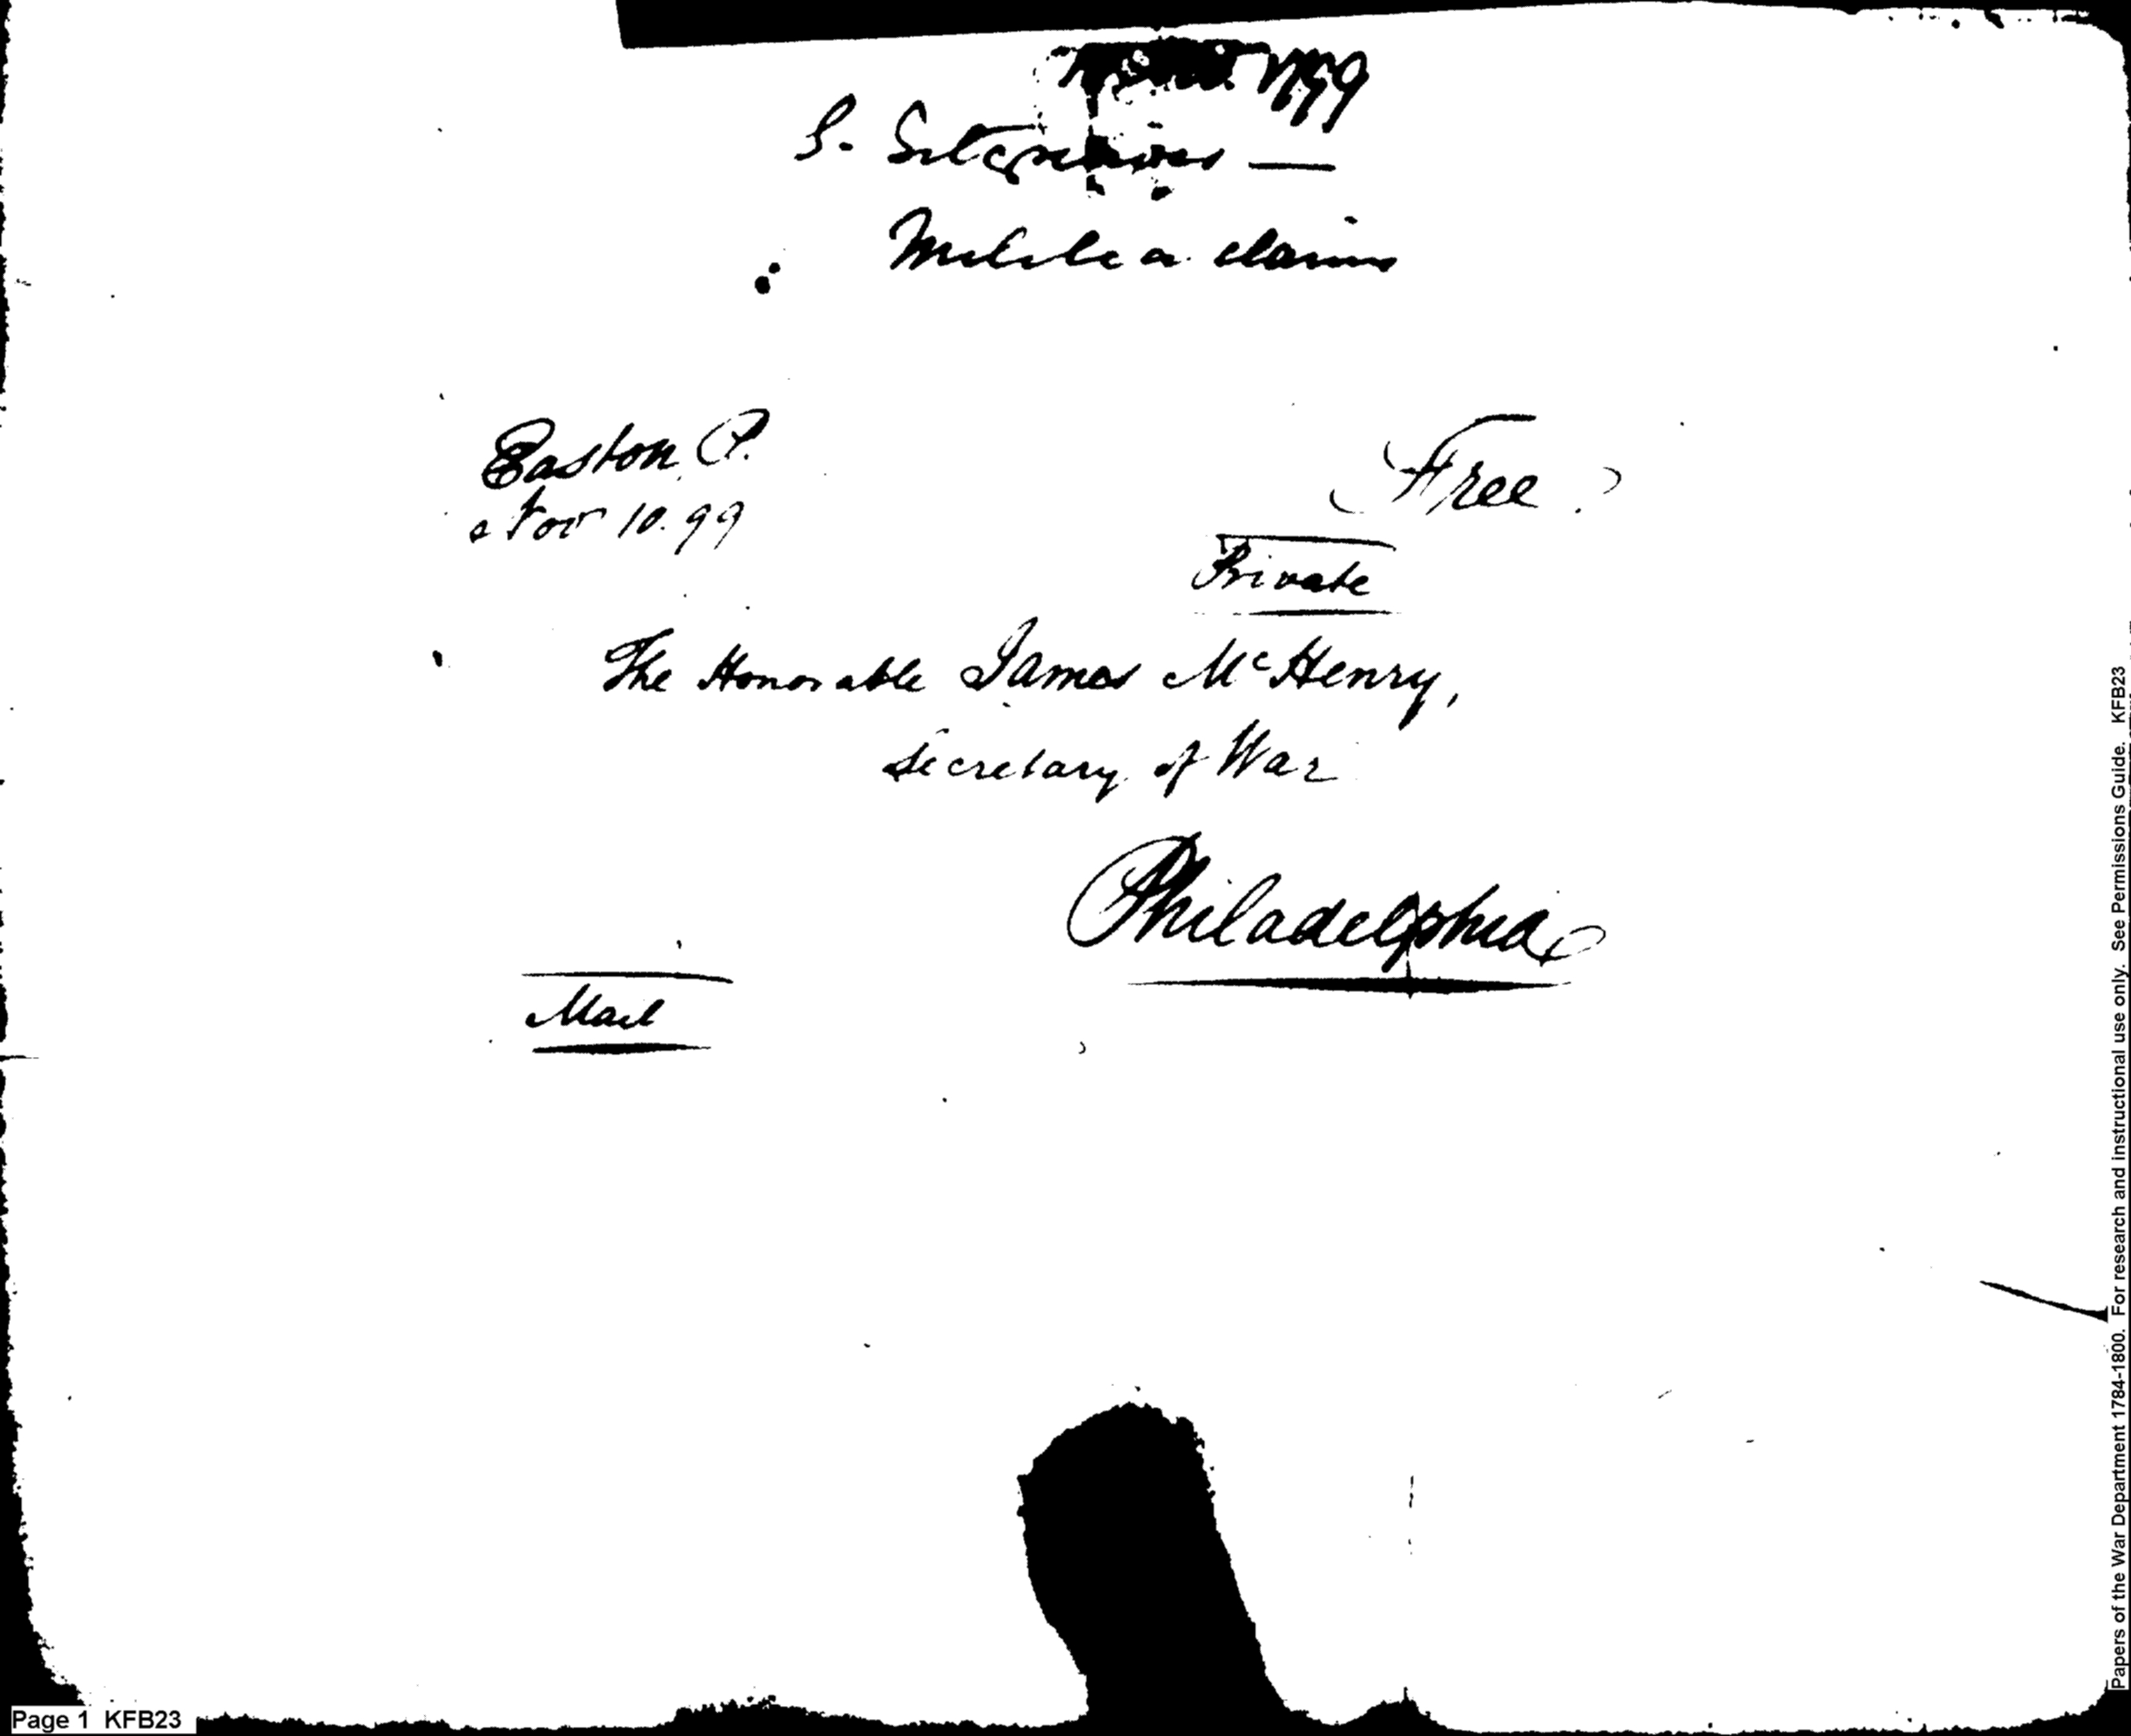 1799
S. Sitgreaves —
Militia claims
Easton, P.
Nov 10. 99
Free.
Private
The Honorable James McHenry,
Secretary of War
Philadelphia
Mail
Papers of the War Department 1784-1800. For research and instructional use only. See Permissions Guide. KFB23
Page 1 KFB23